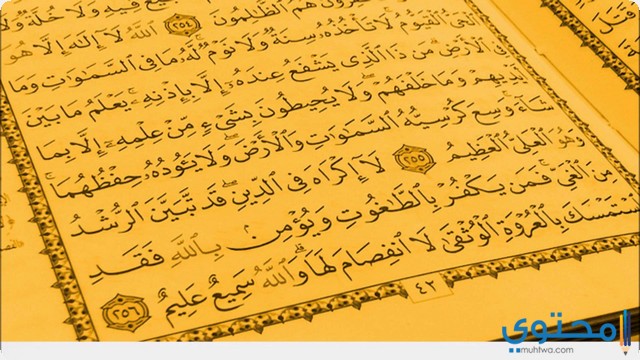 فِيهِ وَلَا خُلَّةٌ وَلَا
هُمُ ٱلظَّٰلِمُونَ ٢٥٤ ٱللَّهُ لَآ إِلَٰهَ إِلَّا هُوَ
ٱلْحَىُّ ٱلْقَيُّومُ لَا تَأْخُذُهُۥ سِنَةٌ وَلَا نَوْمٌ لَّهُۥ مَا فِى ٱلسَّمَٰوَٰتِ وَمَا
فِى ٱلْأَرْضِ مَن ذَا ٱلَّذِى يَشْفَعُ عِندَهُۥٓ إِلَّا بِإِذْنِهِۦ يَعْلَمُ مَا بَيْنَ
أَيْدِيهِمْ وَمَا خَلْفَهُمْ وَلَا يُحِيطُونَ بِشَىْءٍ مِّنْ عِلْمِهِۦٓ إِلَّا بِمَا
شَآءَ وَسِعَ كُرْسِيُّهُ ٱلسَّمَٰوَٰتِ وَٱلْأَرْضَ وَلَا يَـُٔودُهُۥ حِفْظُهُمَا
وَهُوَ ٱلْعَلِىُّ ٱلْعَظِيمُ ٢٥٥ لَآ إِكْرَاهَ فِى ٱلدِّينِ قَد تَّبَيَّنَ ٱلرُّشْدُ
مِنَ ٱلْغَىِّ فَمَن يَكْفُرْ بِٱلطَّٰغُوتِ وَيُؤْمِنۢ بِٱللَّهِ فَقَدِ
ٱسْتَمْسَكَ بِٱلْعُرْوَةِ ٱلْوُثْقَىٰ لَا ٱنفِصَامَ لَهَا وَٱللَّهُ سَمِيعٌ عَلِيمٌ ٢٥٦
٤٢
محتوي
muhtwa.com